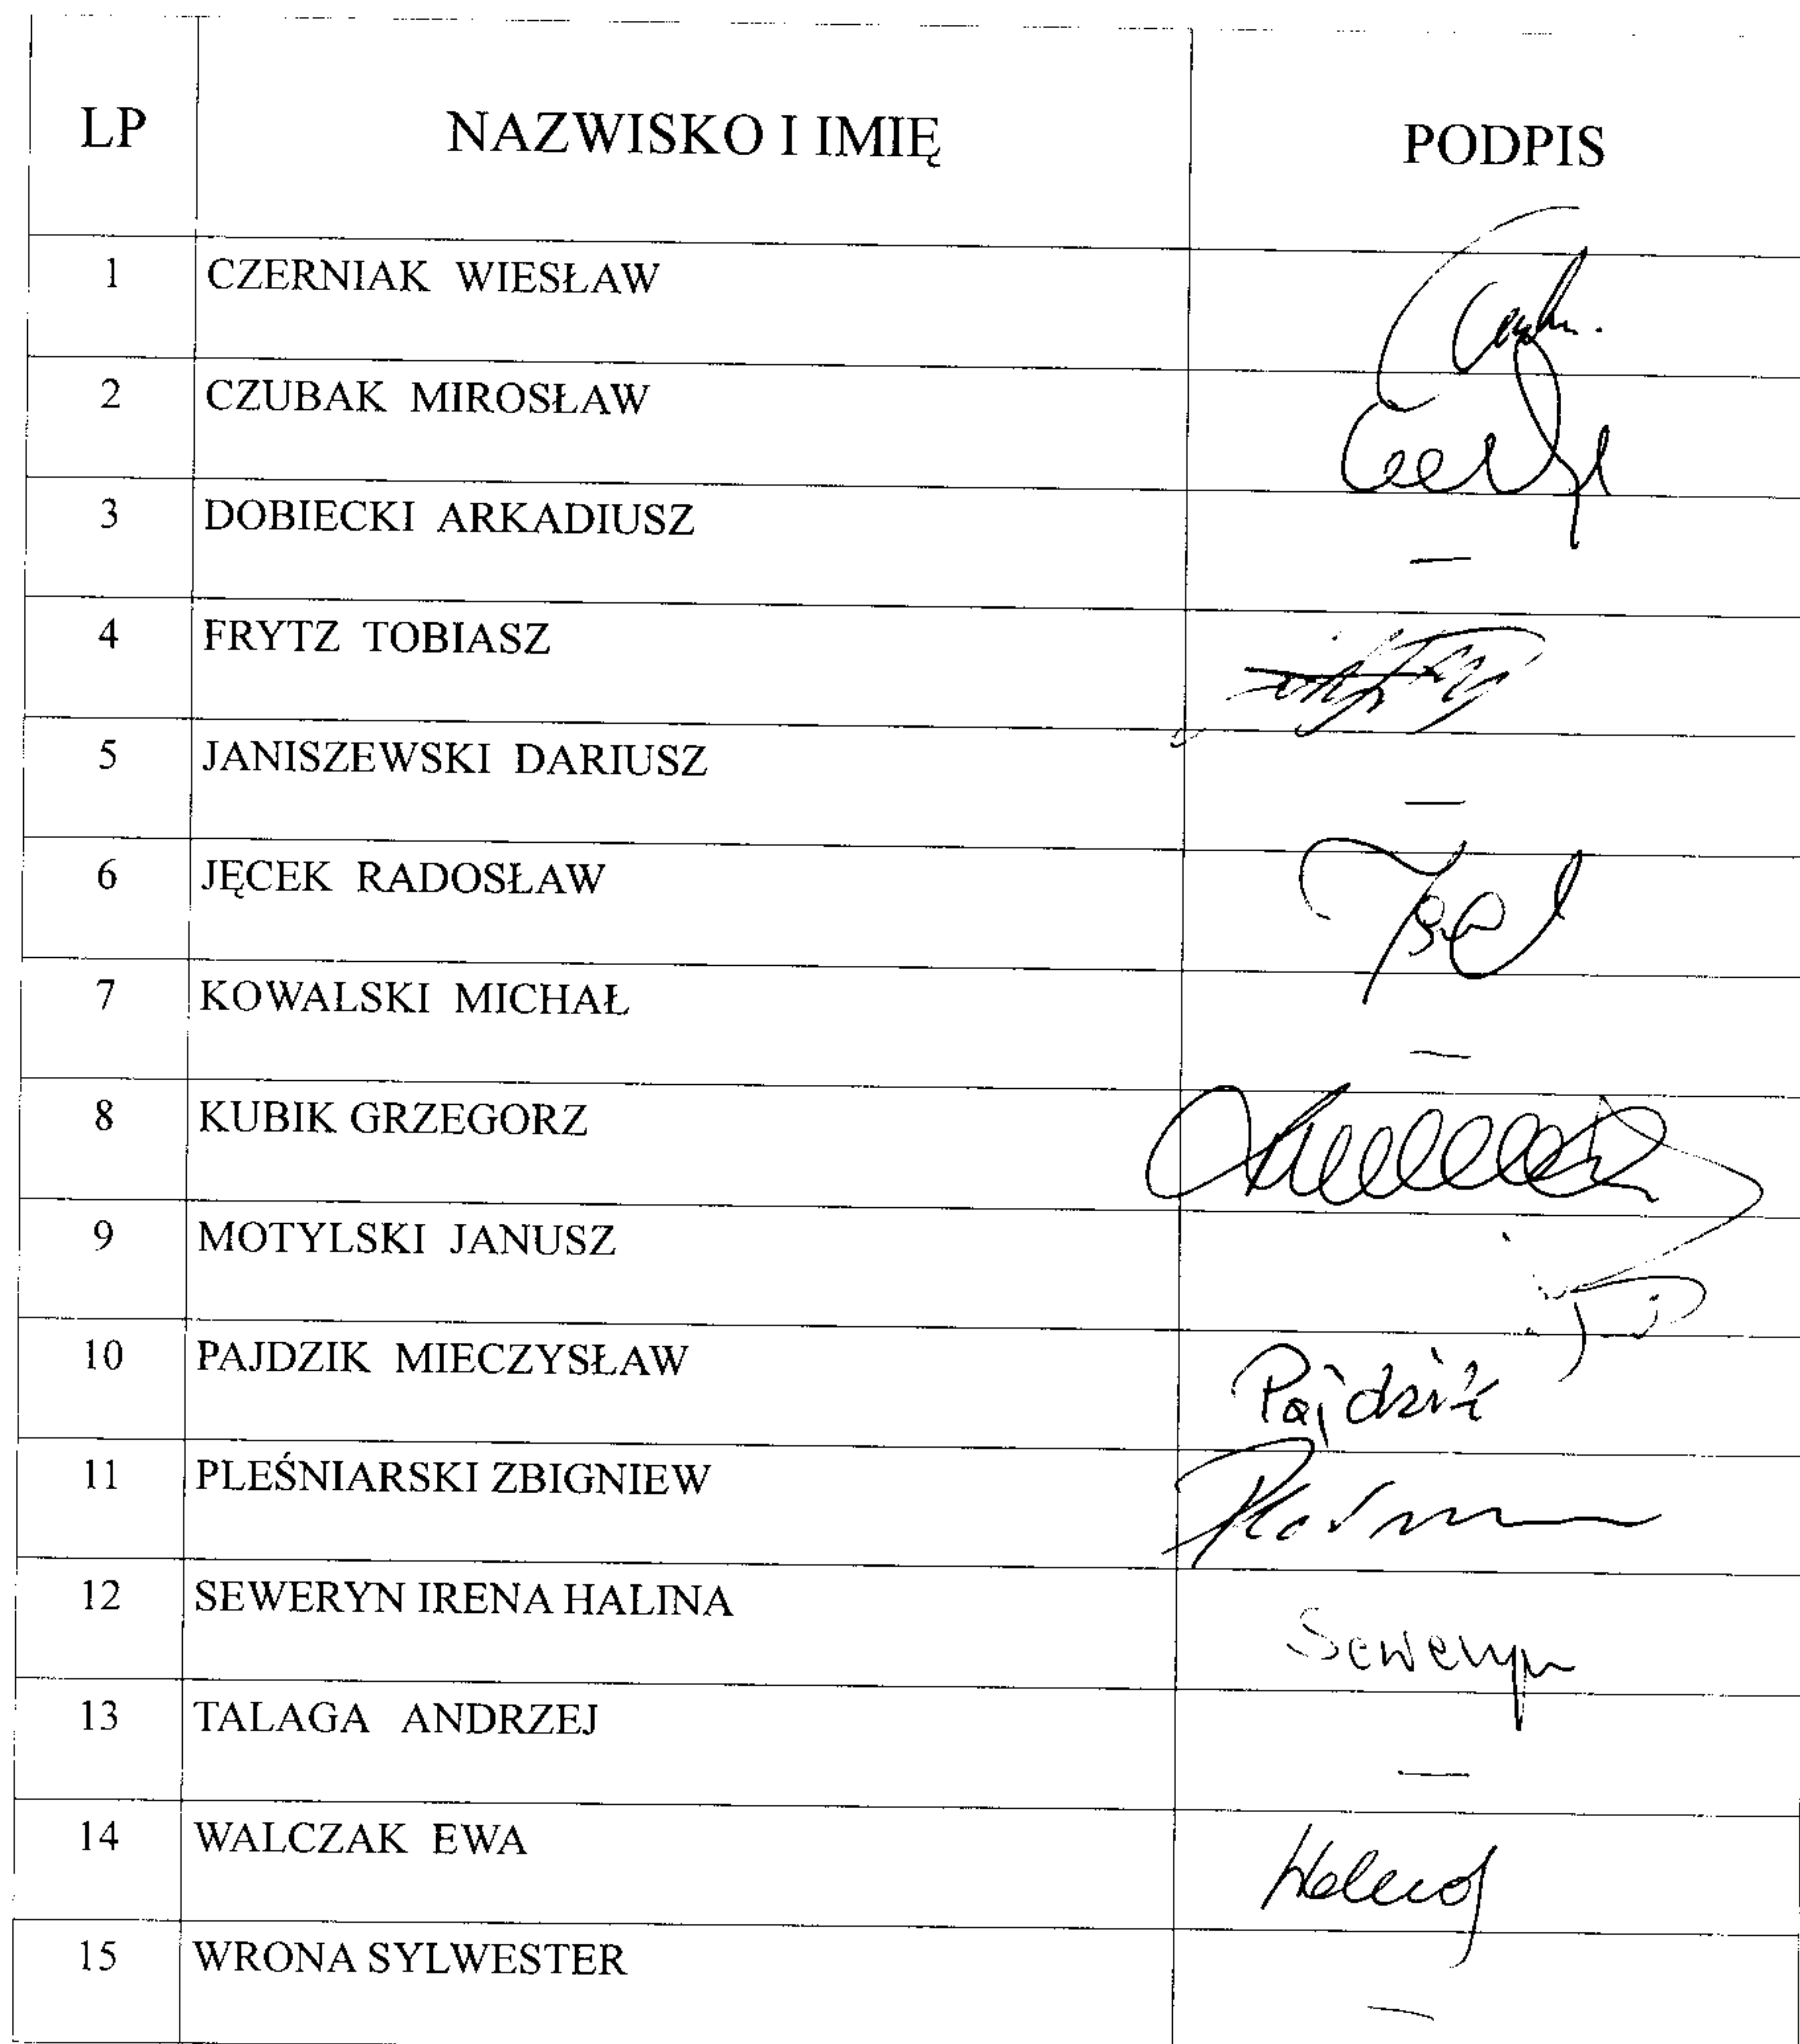 LP NAZWISKO I IMIĘ PODPIS
1 CZERNIAK WIESŁAW
2 CZUBAK MIROSŁAW
3 DOBIECKI ARKADIUSZ —
4 FRYTZ TOBIASZ
5 JANISZEWSKI DARIUSZ —
6 JĘCEK RADOSŁAW
7 KOWALSKI MICHAŁ —
8 KUBIK GRZEGORZ
9 MOTYLSKI JANUSZ
10 PAJDZIK MIECZYSŁAW Pajdzik
11 PLEŚNIARSKI ZBIGNIEW
12 SEWERYN IRENA HALINA Seweryn
13 TALAGA ANDRZEJ —
14 WALCZAK EWA
15 WRONA SYLWESTER —